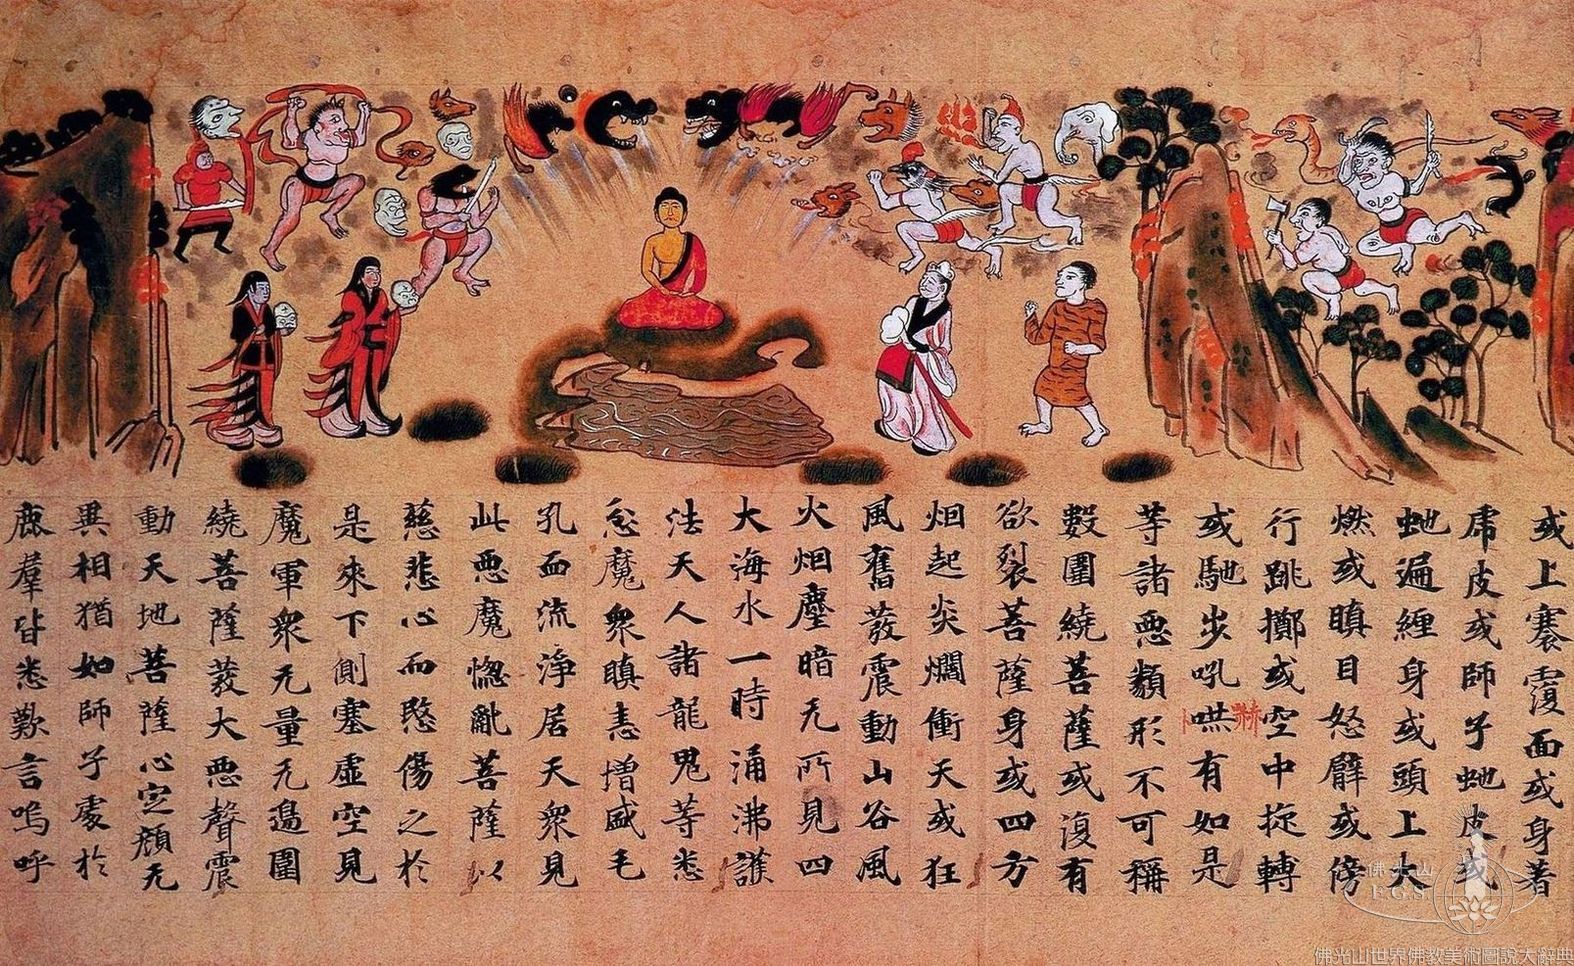 或上褰覆面或身著
虎皮或師子虵皮或
虵遍纏身或頭上大
燃或瞋目怒臂或傍
行跳擲或空中旋轉
或馳步吼哄有如是
嚇
等諸惡類形不可稱
數圍繞菩薩或復有
欲裂菩薩身或四方
烟起炎爓衝天或狂
風奮發震動山谷風
火烟塵暗无所見四
大海水一時涌沸護
法天人諸龍鬼等悉
忿魔衆瞋恚增盛毛
孔血流淨居天衆見
此惡魔惚亂菩薩以
慈悲心而愍傷之於
是來下側塞虛空見
魔軍衆无量无邊圍
繞菩薩發大惡聲震
動天地菩薩心定顏无
異相猶如師子處於
鹿羣皆悉歎言嗚呼
佛光山
F.G.S.
佛光山世界佛教美術圖說大辭典